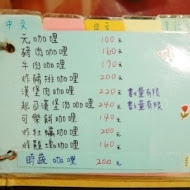 中文
日文
元咖哩 100元
豬肉咖哩 160元
牛肉咖哩 170元
炸豬排咖哩 200元
漢堡肉咖哩 220元 數量有限
起司漢堡肉咖哩 240元 數量有限
可樂餅咖哩 140元
炸牡蠣咖哩 200元
炸雞塊咖哩 160元
時蔬咖哩 200元